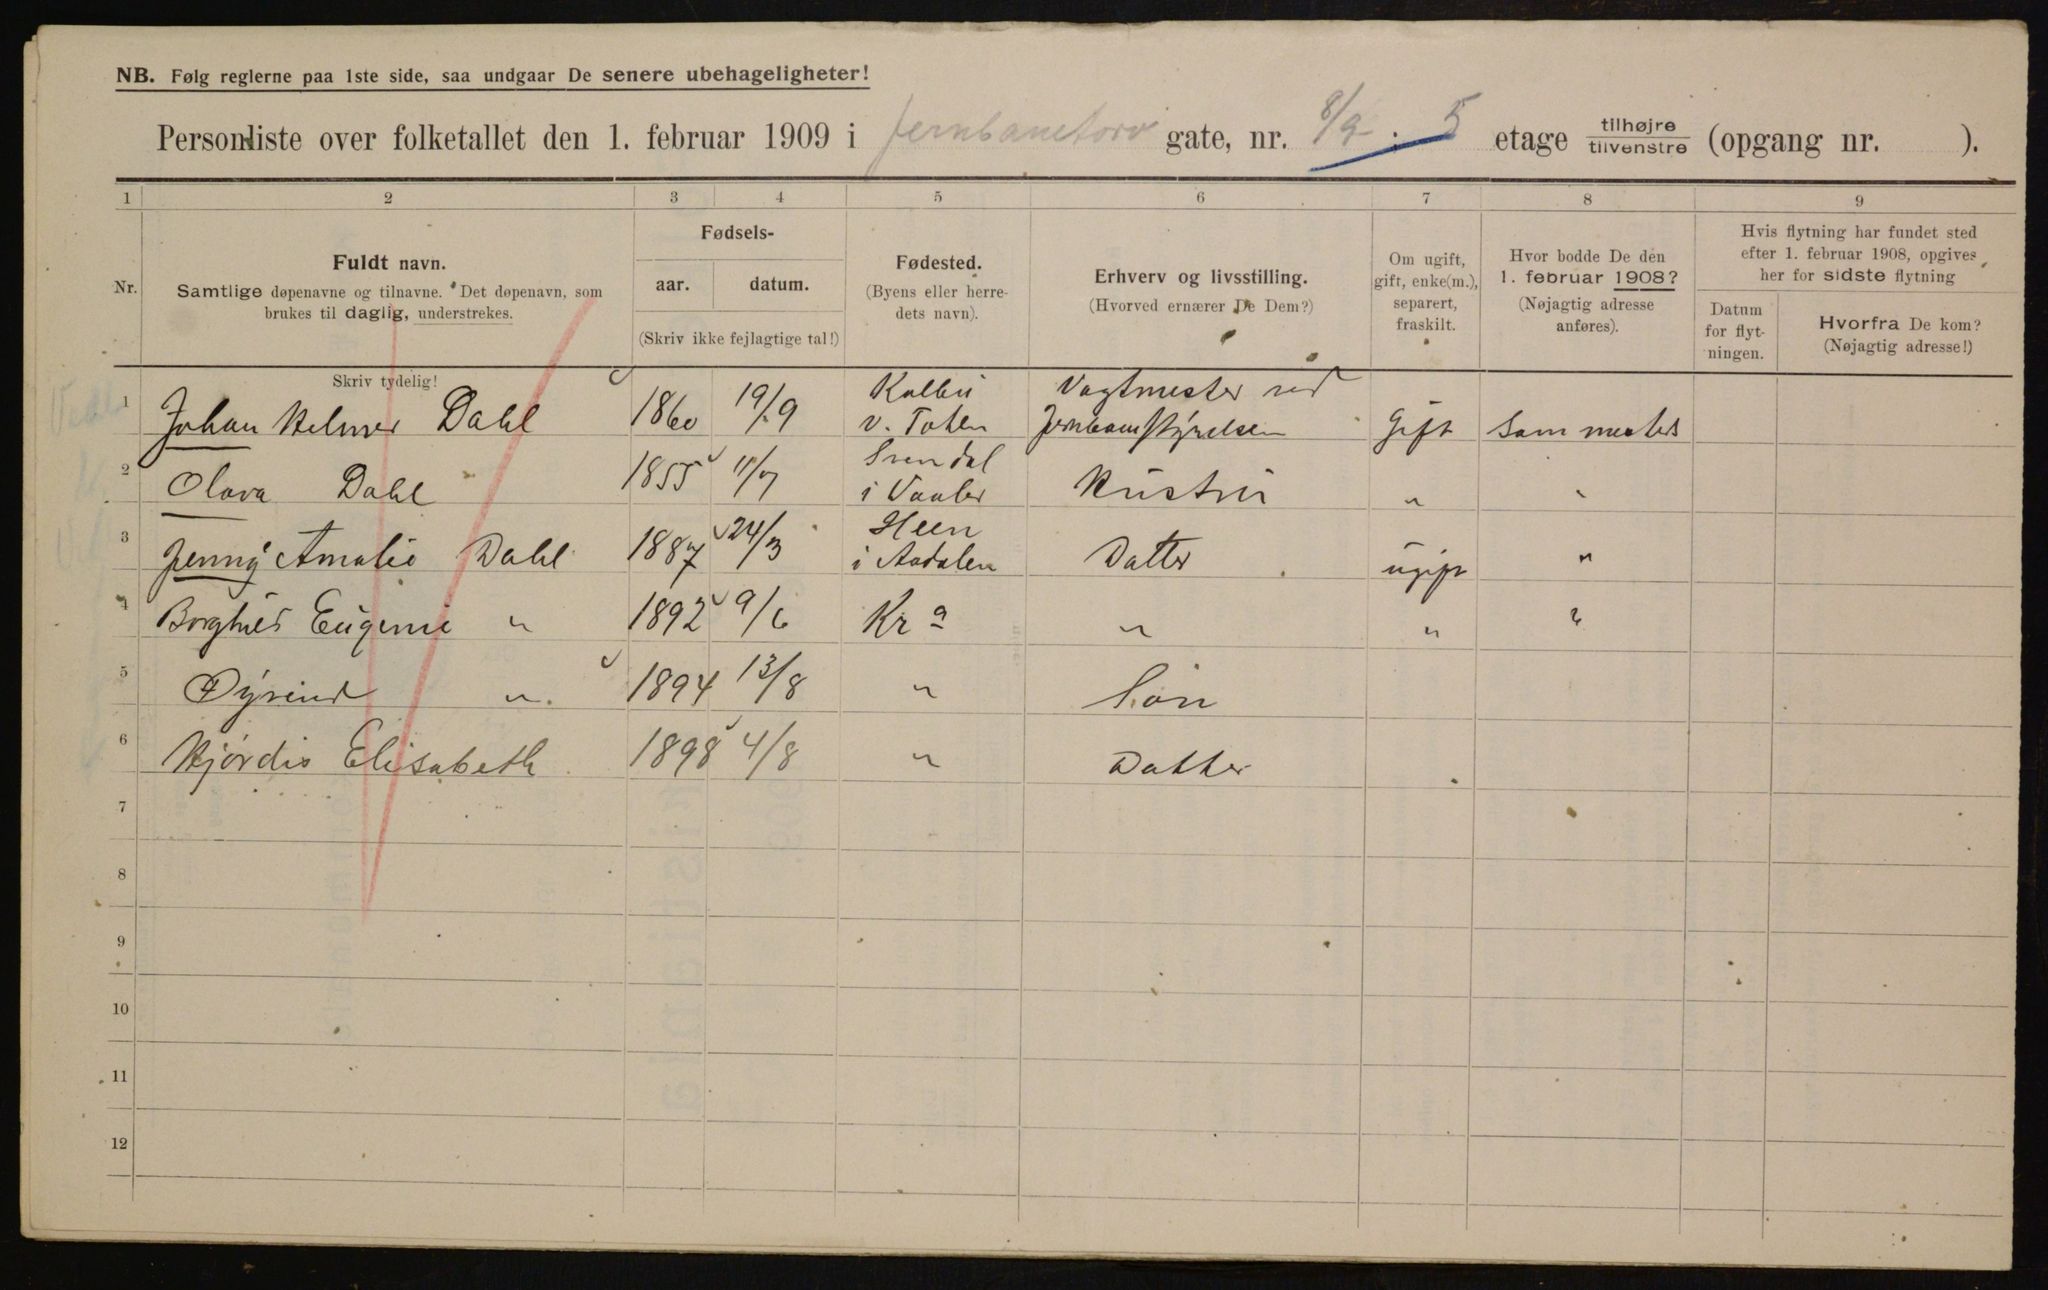 NB. Følg reglerne paa 1ste side, saa undgaar De senere ubehageligheter!
Personliste over folketallet den 1. februar 1909 i Jernbanetorv gate, nr. 8/9 : 5 etage tilhøjre/tilvenstre (opgang nr. ).
1 2 3 4 5 6 7 8 9
Nr.
Fuldt navn.
Samtlige døpenavne og tilnavne. Det døpenavn, som
brukes til daglig, understrekes.
Skriv tydelig!
Fødsels-
aar. datum.
(Skriv ikke fejlagtige tal!)
Fødested.
(Byens eller herre-
dets navn).
Erhverv og livsstilling.
(Hvorved ernærer De Dem?)
Om ugift,
gift, enke(m.),
separert,
fraskilt.
Hvor bodde De den
1. februar 1908?
(Nøjagtig adresse
anføres).
Hvis flytning har fundet sted
efter 1. februar 1908, opgives
her for sidste flytning
Datum
for flyt-
ningen.
Hvorfra De kom?
(Nøjagtig adresse!)
1 Johan Helmer Dahl 1860 19/9 Kolbu v. Toten Vagtmester ved Jernbanestyrelsen Gift Sammesteds
2 Olava Dahl 1855 11/7 Svendal i Vaaler Hustru " "
3 Jenny Amalie Dahl 1887 24/3 Heen i Aadalen Datter ugift "
4 Borghild Eugenie " 1892 9/6 Kra " " "
5 Øyvind " 1894 13/8 " Søn
6 Hjørdis Elisabeth 1898 4/8 " Datter
7
8
9
10
11
12